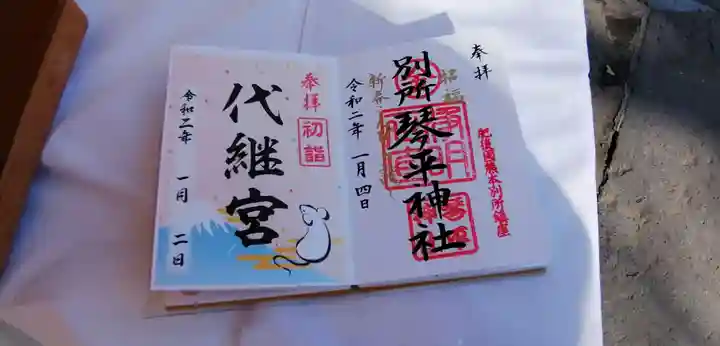 奉拝
肥後國熊本別所鎮座
別所琴平神社
招福
新春
令和二年 一月四日
奉拝
初詣
代継宮
令和二年 一月 二日